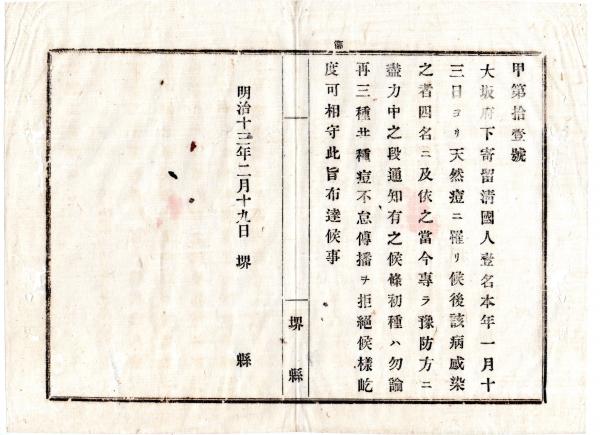 甲第拾壹號
大坂府下寄留清國人壹名本年一月十
三日ヨリ天然痘ニ罹リ候後該病感染
之者四名ニ及依之當今專ラ豫防方ニ
盡力中之段通知有之候條初種ハ勿論
再三種共種痘不怠傳播ヲ拒絕候樣屹
度可相守此旨布達候事
堺縣
明治十三年二月十九日 堺縣